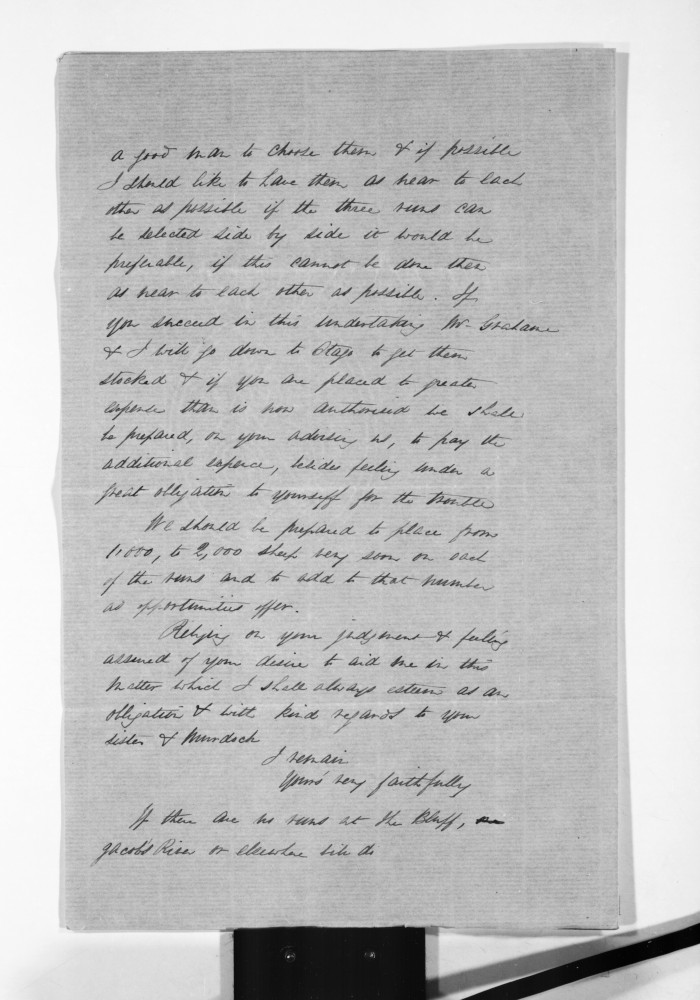 a good man to choose them & if possible
I should like to have them as near to each
other as possible if the three runs can
be selected side by side it would be
preferable, if this cannot be done then
as near to each other as possible. If
you succeed in this undertaking Mr Grahame
& I will go down to Otago to get them
stocked & if you are placed to greater
expense than is now authorised we shall
be prepared, on your advising us, to pay the
additional expence, besides feeling under a
great obligation to yourself for the trouble
We should be prepared to place from
1,000, to 2,000 sheep very soon on each
of the runs and to add to that number
as opportunities offer.
Relying on your judgment & feeling
assured of your desire to aid me in this
matter which I shall always esteem as an
obligation & with kind regards to your
sister & Murdoch
I remain
Yours very faithfully
If there are no runs at the Bluff,
Jacob's River or elsewhere will do